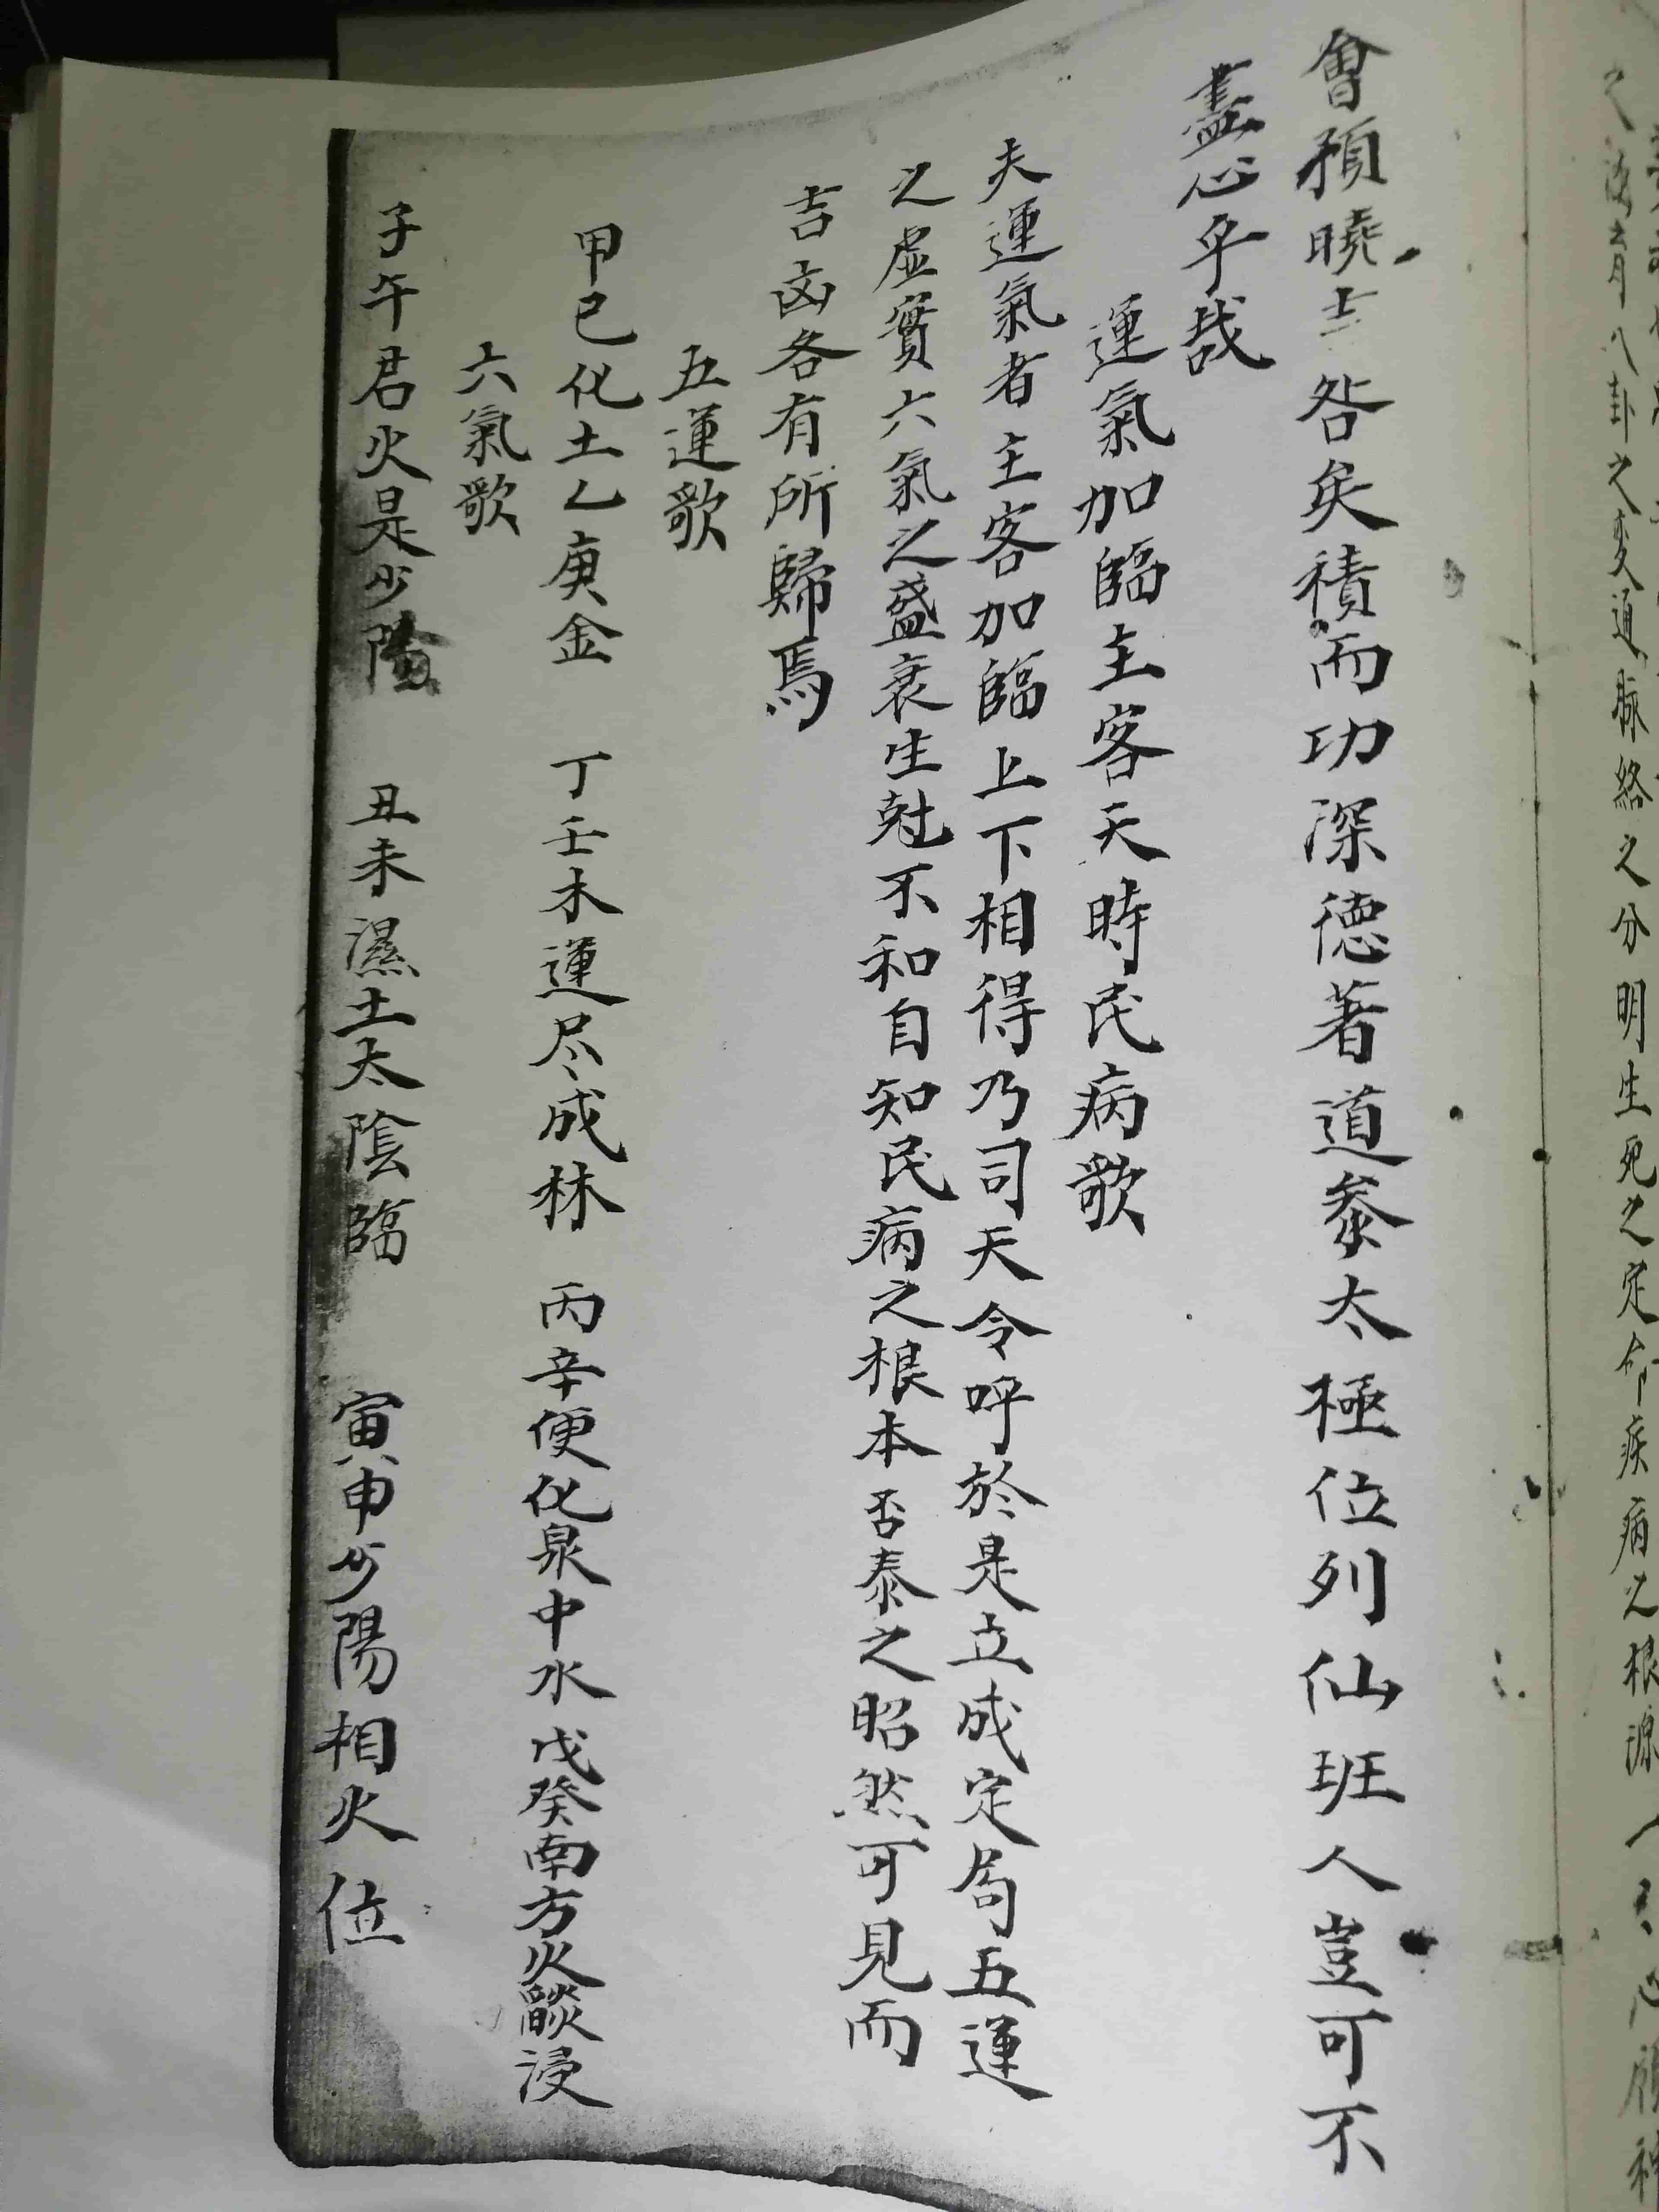 之海有八卦之变通脉絡之分明生死之定命疾病之根源人
會預曉吉咎矣積而功深德著道叅太極位列仙班人豈可不
盡心乎哉
運氣加臨主客天時民病歌
夫運氣者主客加臨上下相得乃司天令呼於是立成定局五運
之虛實六氣之盛衰生尅不和自知民病之根本否泰之昭然可見而
吉凶各有所歸焉
五運歌
甲己化土乙庚金 丁壬木運尽成林 丙辛便化泉中水 戊癸南方火燄浸
六氣歌
子午君火是少陰 丑未濕土太陰臨 寅申少陽相火位